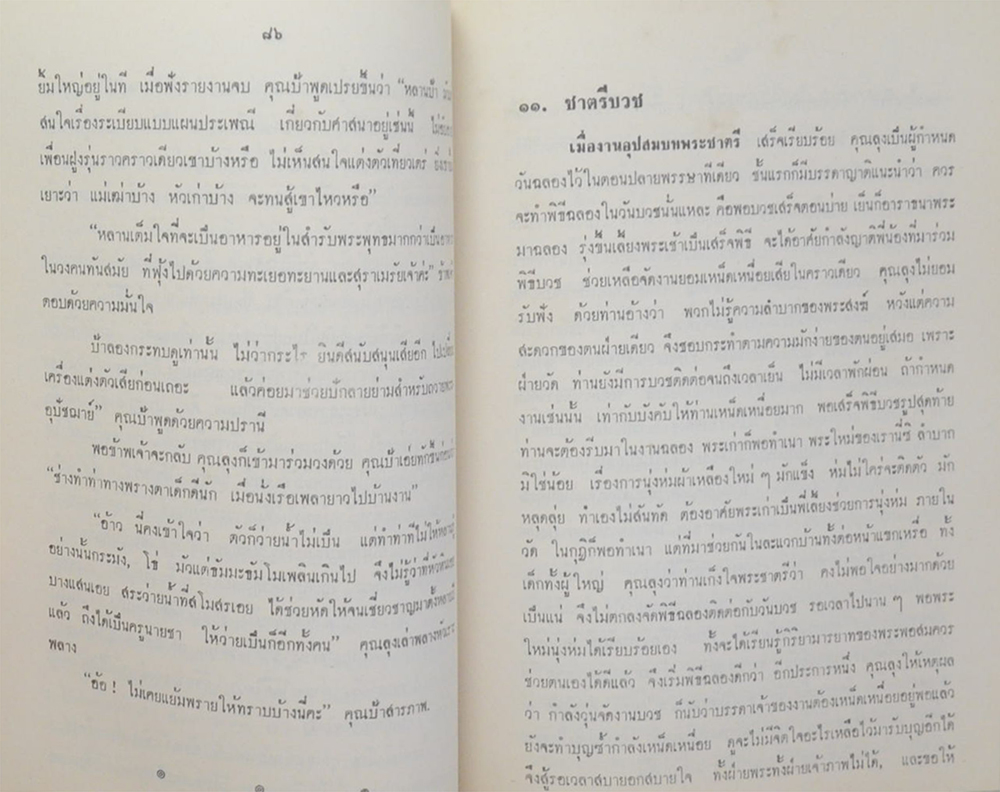 ๘๖
ยิ้มใหญ่อยู่ในที เมื่อฟังรายงานจบ คุณป้าพูดเปรยขึ้นว่า “หลานป้า
สนใจเรื่องระเบียบแบบแผนประเพณี เกี่ยวกับศาสนาอยู่เช่นนี้
เพื่อนฝูงรุ่นราวคราวเดียวเขาบ้างหรือ ไม่เห็นสนใจแต่งตัวเที่ยวเตร่
เยาะว่า แม่เฒ่าบ้าง หัวเก่าบ้าง จะทนสู้เขาไหวหรือ”
“หลานเต็มใจที่จะเป็นอาหารอยู่ในสำรับพระพุทธมากกว่าเป็น
ในวงคนทันสมัย ที่ฟุ้งไปด้วยความทะเยอทะยานและสุราเมรัยเจ้าค่ะ”
ตอบด้วยความมั่นใจ
ป้าลองกระทบดูเท่านั้น ไม่ว่ากระไร ยินดีสนับสนุนเสียอีก
เครื่องแต่งตัวเสียก่อนเถอะ แล้วค่อยมาช่วยปักลายย่ามสำหรับถวาย
อุปัชฌาย์” คุณป้าพูดด้วยความปรานี
พอข้าพเจ้าจะกลับ คุณลุงก็เข้ามาร่วมวงด้วย คุณป้าเอ่ยทักขึ้น
“ช่างทำท่าทางพรางตาเด็กดีนัก เมื่อนั่งเรือเพลายาวไปบ้านงาน”
“อ้าว นี่คงเข้าใจว่า ตัวก็ว่ายน้ำไม่เป็น แต่ทำท่าทีไม่ให้
อย่างนั้นกระมัง, โธ่ มัวแต่ขมีขมันโมเพลินเกินไป จึงไม่รู้ว่า
บางแสนเอย สระว่ายน้ำที่สโมสรเอย ได้ช่วยหัดให้จนเชี่ยวชาญมา
แล้ว ถึงได้เป็นครูนายชา ให้ว่ายเป็นก็อีกทั้งคน” คุณลุงเล่าพลาง
พลาง
“อ้อ ! ไม่เคยแย้มพรายให้ทราบบ้างนี่คะ” คุณป้าสารภาพ.
๑๑. ชาตรีบวช
เมื่องานอุปสมบทพระชาตรี เสร็จเรียบร้อย คุณลุงเป็นผู้กำหนด
วันฉลองไว้ในตอนปลายพรรษาทีเดียว ชั้นแรกก็มีบรรดาญาติแนะนำว่า ควร
จะทำพิธีฉลองในวันบวชนั้นแหละ คือพอบวชเสร็จตอนบ่าย เย็นก็อาราธนาพระ
มาฉลอง รุ่งขึ้นเลี้ยงพระเช้าเป็นเสร็จพิธี จะได้อาศัยกำลังญาติพี่น้องที่มาร่วม
พิธีบวช ช่วยเหลือจัดงานยอมเหน็ดเหนื่อยเสียในคราวเดียว คุณลุงไม่ยอม
รับฟัง ด้วยท่านอ้างว่า พวกไม่รู้ความลำบากของพระสงฆ์ หวังแต่ความ
สะดวกของตนฝ่ายเดียว จึงชอบกระทำตามความมักง่ายของตนอยู่เสมอ เพราะ
ฝ่ายวัด ท่านยังมีการบวชติดต่อจนถึงเวลาเย็น ไม่มีเวลาพักผ่อน ถ้ากำหนด
งานเช่นนั้น เท่ากับบังคับให้ท่านเหน็ดเหนื่อยมาก พอเสร็จพิธีบวชรูปสุดท้าย
ท่านจะต้องรีบมาในงานฉลอง พระเก่าก็พอทำเนา พระใหม่ของเรานี่ซิ ลำบาก
มิใช่น้อย เรื่องการนุ่งห่มผ้าเหลืองใหม่ ๆ มักแข็ง ห่มไม่ใคร่จะติดตัว มัก
หลุดลุ่ย ทำเองไม่สันทัด ต้องอาศัยพระเก่าเป็นพี่เลี้ยงช่วยการนุ่งห่ม ภายใน
วัด ในกุฏิก็พอทำเนา แต่ที่มาช่วยกันในละแวกบ้านทั้งต่อหน้าแขกเหรื่อ ทั้ง
เด็กทั้งผู้ใหญ่ คุณลุงว่าท่านเก็งใจพระชาตรีว่า คงไม่พอใจอย่างมากด้วย
เป็นแน่ จึงไม่ตกลงจัดพิธีฉลองติดต่อกับวันบวช รอเวลาไปนาน ๆ พอพระ
ใหม่นุ่งห่มได้เรียบร้อยเอง ทั้งจะได้เรียนรู้กิริยามารยาทของพระพอสมควร
ช่วยตนเองได้ดีแล้ว จึงเริ่มพิธีฉลองดีกว่า อีกประการหนึ่ง คุณลุงให้เหตุผล
ว่า กำลังวุ่นจัดงานบวช ก็นับว่าบรรดาเจ้าของงานต้องเหน็ดเหนื่อยอยู่พอแล้ว
ยังจะทำบุญซ้ำกำลังเหน็ดเหนื่อย ดูจะไม่มีจิตใจอะไรเหลือไว้มารับบุญอีกได้
จึงสู้รอเวลาสบายอกสบายใจ ทั้งฝ่ายพระทั้งฝ่ายเจ้าภาพไม่ได้, และขอให้